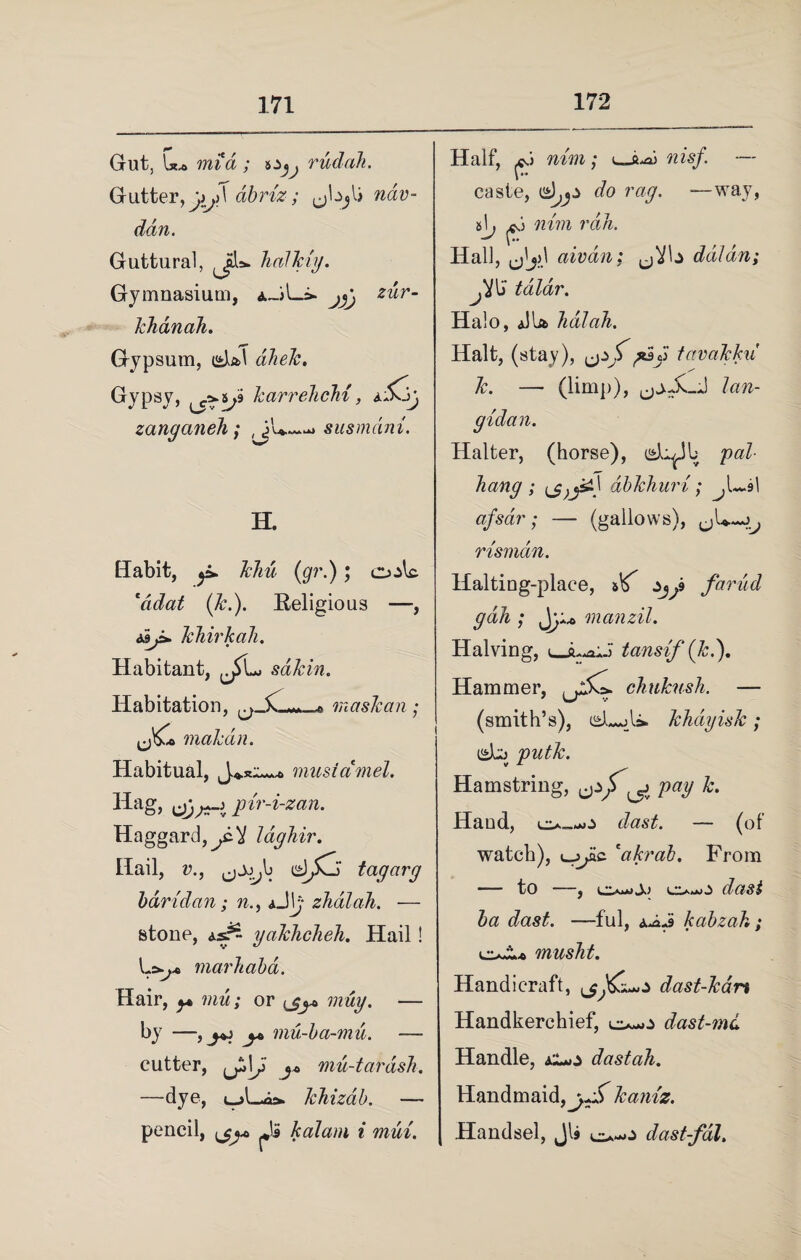 171
Gut, معا mi'á ; روده rúdah.
Gutter, آبریز ábríz ; ناودان náv-
dán.
Guttural, حلقی halkíy.
Gymnasium, زورخانه zúr-
khánah.
Gypsum, آهک áhek.
Gypsy, قرهچی karrehchí, زنگنه
zanganeh ; سسمانی susmání.
H.
Habit, خو khú (gr.) ; عادت
'ádat (k.). Religious —,
خرقه khirkah.
Habitant, ساکن sákin.
Habitation, مسکن maskan ;
مکان makán.
Habitual, مستعمل musta'mel.
Hag, پیرزن pír-i-zan.
Haggard, لاغر lághir.
Hail, v., تگرگ باریدن tagarg
bárídan ; n., ژاله zhálah. —
stone, یخچه yakhcheh. Hail !
مرحبا marhabá.
Hair, مو mú ; or موی múy. —
by —, مو بمو mú-ba-mú. —
cutter, مو تراش mú-tarásh.
—dye, خضاب khizáb. —
pencil, قلم موی kalam i múí.
172
Half, نیم ním ; نصف nisf. —
caste, دو رگ do rag. —way,
نیم راه ním ráh.
Hall, ایوان aiván ; دالان dálán;
تالار tálár.
Halo, هاله hálah.
Halt, (stay), توقع کردن tavakku'
k. — (limp), لنگیدن lan-
gídan.
Halter, (horse), پالهنگ pal-
hang ; آبخوری ábkhurí ; افسار
afsár ; — (gallows), ریسمان
rismán.
Halting-place, فرود گاه farúd
gáh ; منزل manzil.
Halving, تنصیف tansíf (k.).
Hammer, چکش chukush. —
(smith's), خایسک kháyisk ;
پتک putk.
Hamstring, پی کردن pay k.
Hand, دست dast. — (of
watch), عقرب 'akrab. From
— to —, دست بدست dast
ba dast. —ful, قبضه kabzah ;
مشت musht.
Handicraft, دستکاری dast-kárí
Handkerchief, دست dast-má
Handle, دسته dastah.
Handmaid, کنیز kaníz.
Handsel, دست فال dast-fál.